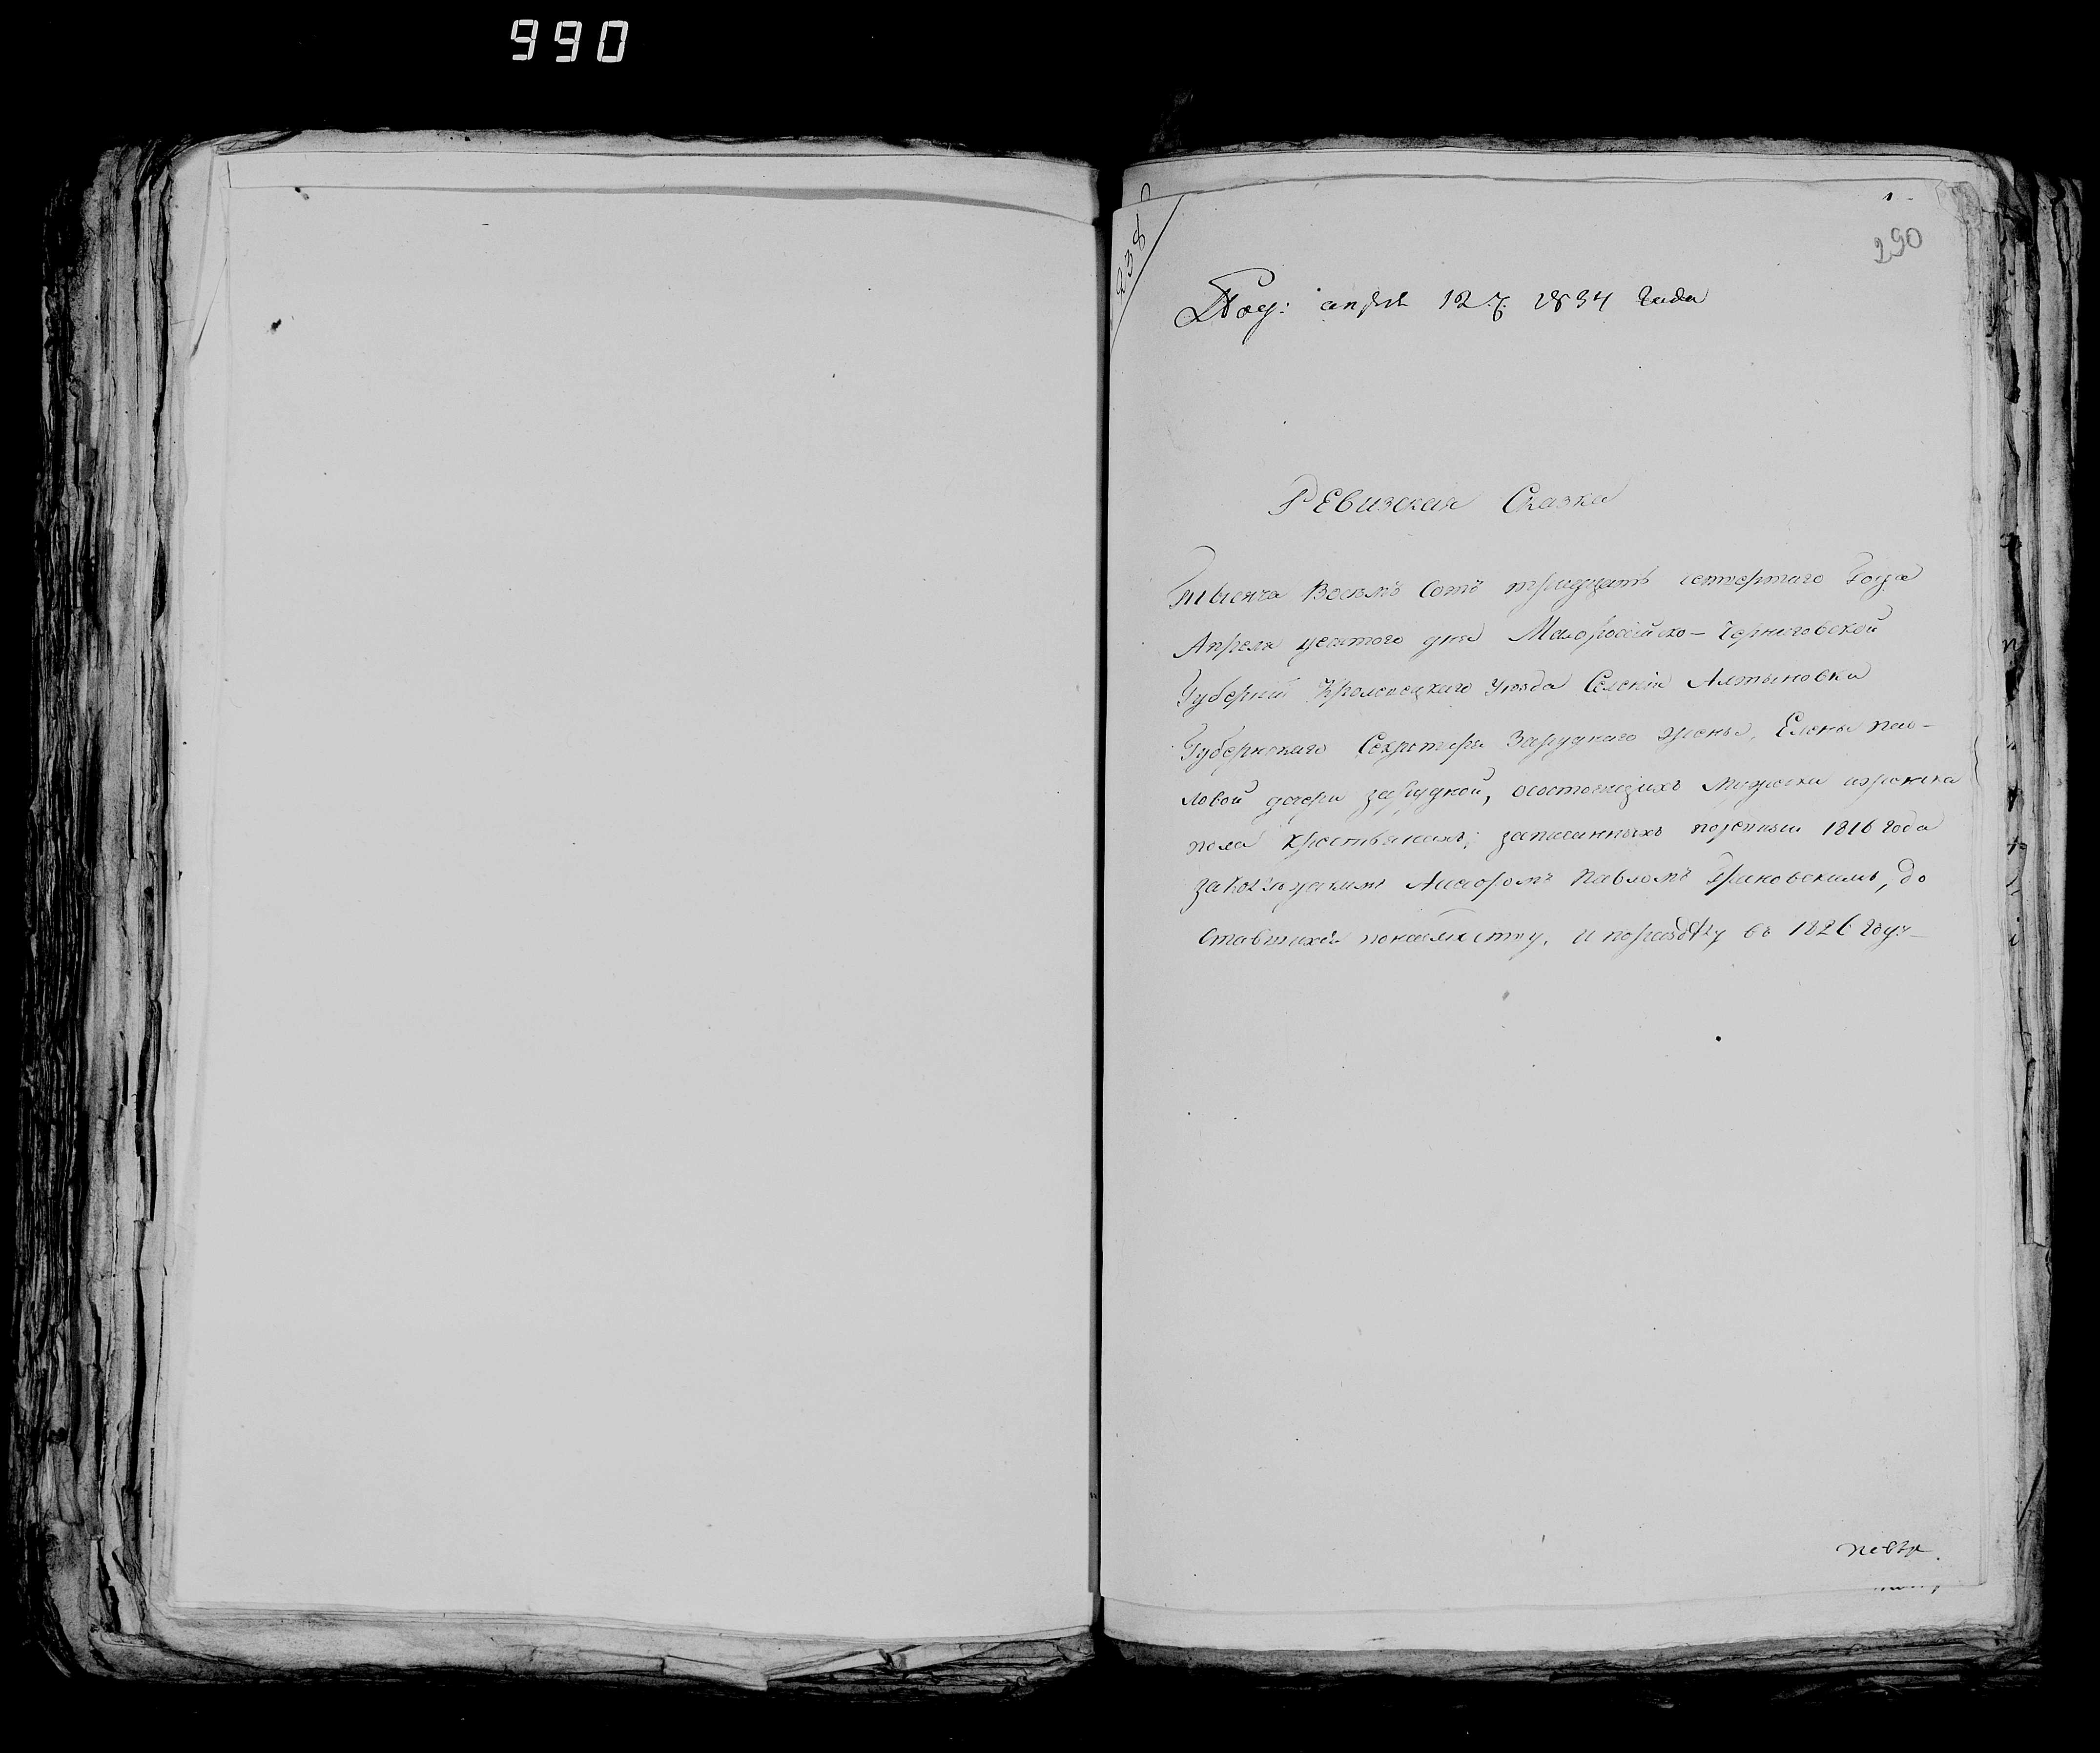 990
238
1.
290
Под: апрѣля 12 ч. 1834 года
Ревизская Сказка
Тысяча Восемъ Сотъ тридцать четвертаго Года
Апреля десятого дня Малороссійско- Черниговской
Губерніи Кролевецкаго Уезда Селенія Алтыновки
Губернскаго Секретаря Заруднаго жены, Елены Пав-
ловой дочери зарудной, осостоящихъ мужеска иженска
пола крестьянахъ; записанныхъ поревизіи 1816 года
Павломъ до
ставшихся и поразделу въ 1826 году-